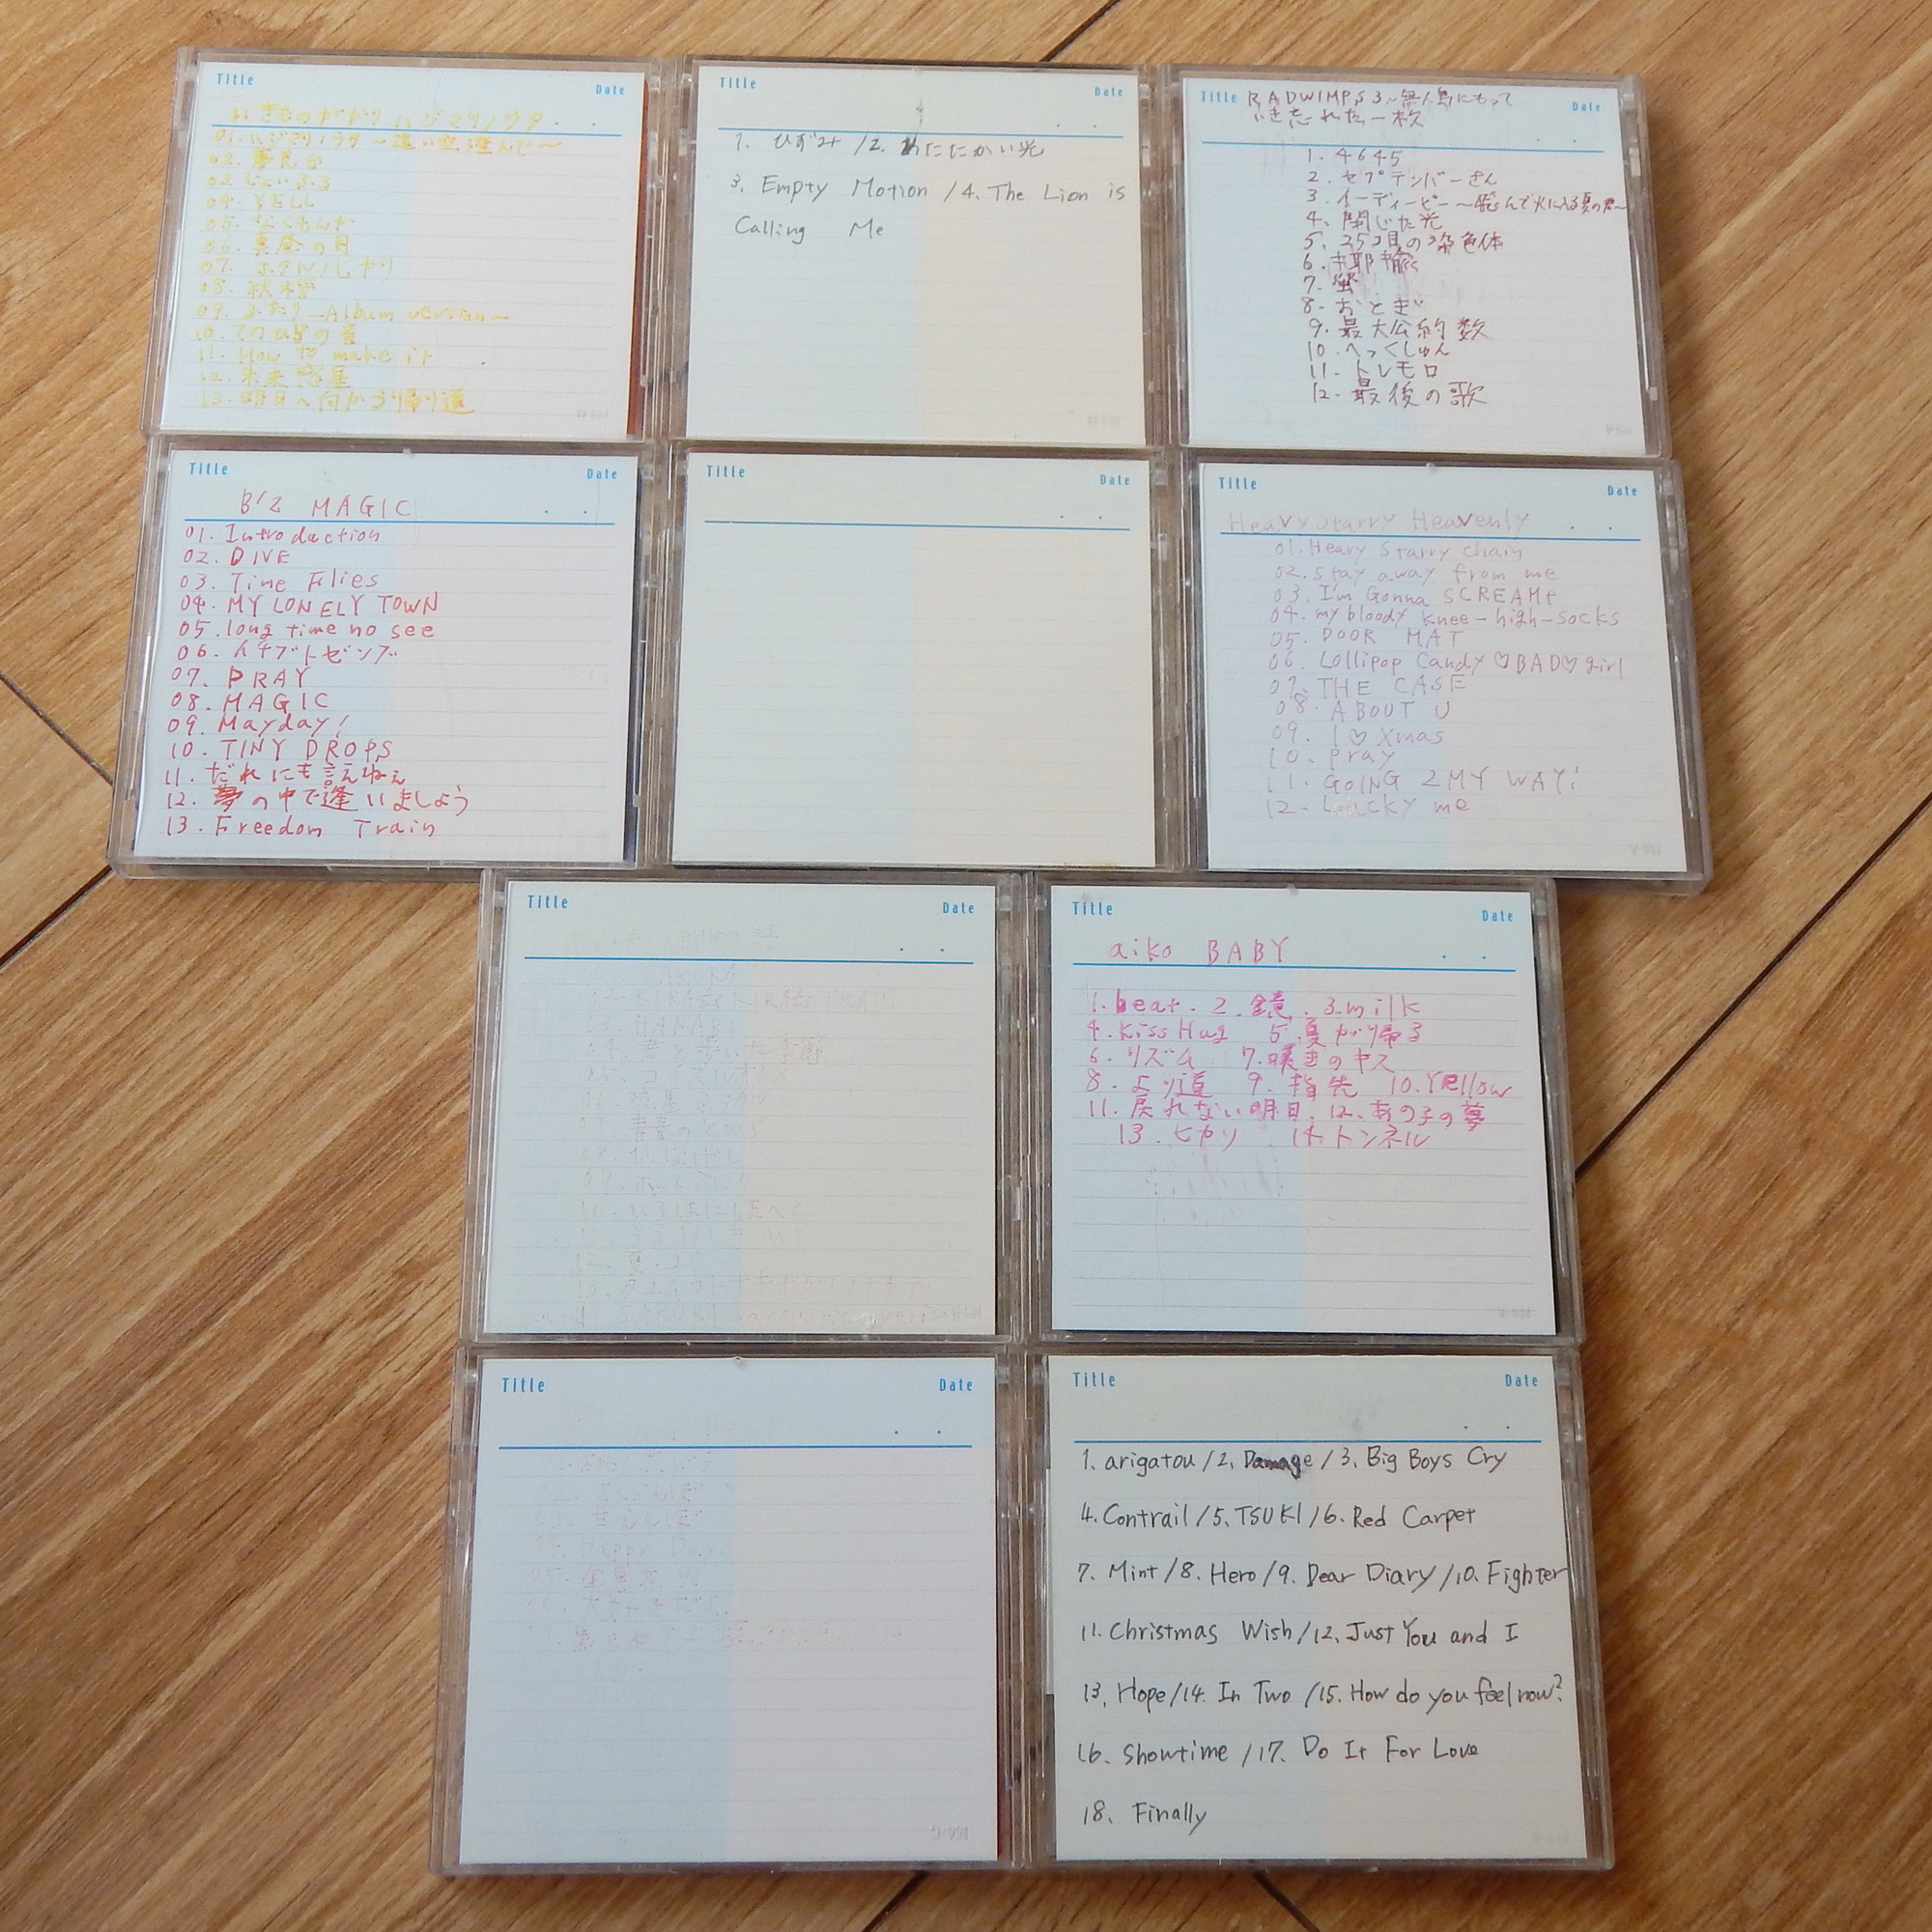 Title
Date
いきものがかり ハジマリノウタ
01. ハジマリノウタ〜遠い空澄んで〜
02. 夢見台
03. じょいふる
04. YELL
05. なくもんか
06. 真昼の月
07. ホタルノヒカリ
08. 秋桜
09. ふたり -Album version-
10. てのひらの音
11. How to make it
12. 未来惑星
13. 明日へ向かう帰り道
Title
Date
1. ひずみ /2. あたたかい光
3. Empty Motion /4. The Lion is
Calling Me
Title
Date
RADWIMPS 3〜無人島にもって
いき忘れた一枚
1. 4645
2. セプテンバーさん
3. イーディーピー〜飛んで火に入る夏の君〜
4. 閉じた光
5. 25コ目の染色体
6. 揶揄
7. 蛍
8. おとぎ
9. 最大公約数
10. へっくしゅん
11. トレモロ
12. 最後の歌
Title
Date
B'z MAGIC
01. Introduction
02. DIVE
03. Time Flies
04. MY LONELY TOWN
05. long time no see
06. イチブトゼンブ
07. PRAY
08. MAGIC
09. Mayday!
10. TINY DROPS
11. だれにも言えねぇ
12. 夢の中で逢いましょう
13. Freedom Train
Title
Date
Title
Date
Heavy Starry Heavenly
01. Heavy Starry Chain
02. Stay away from me
03. I'm Gonna SCREAM+
04. my bloody knee-high-socks
05. DOOR MAT
06. Lollipop Candy♡BAD♡girl
07. THE CASE
08. ABOUT U
09. I♡Xmas
10. pray
11. GOING 2 MY WAY!
12. Lucky me
Title
Date
SAKURA
02. KIRA☆KIRA☆TRAIN
03. HANABI
04. 君と歩いた季節
05. コイスルオトメ
06. 流星ミラクル
07. 青春のとびら
08. ひなげし
09. ホットミルク
10. いろはにほへと
12. 夏・コイ
Title
Date
aiko BABY
1. beat. 2. 鏡. 3. milk
4. KissHug 5. 夏が帰る
6. リズム 7. 嘆きのキス
8. より道 9. 指先 10. Yellow
11. 戻れない明日. 12. あの子の夢
13. ヒカリ 14. トンネル
Title
Date
02. さくらんぼ
04. Happy Days
05. 金魚花火
06. 大好きだよ。
Title
Date
1. arigatou /2. Damage /3. Big Boys Cry
4. Contrail /5. TSUKI /6. Red Carpet
7. Mint /8. Hero /9. Dear Diary /10. Fighter
11. Christmas Wish /12. Just You and I
13. Hope /14. In Two /15. How do you feel now?
16. Showtime /17. Do It For Love
18. Finally